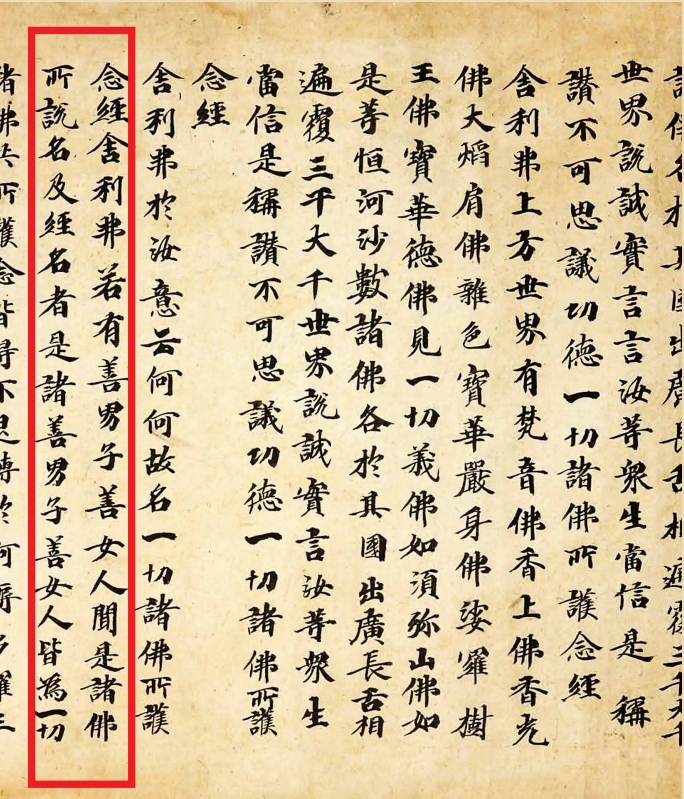 諸佛各於其國出廣長舌相遍覆三千大千
世界説誠實言言汝等衆生當信是稱
讃不可思議功德一切諸佛所護念經
舍利弗上方世界有梵音佛香上佛香光
佛大焰肩佛雜色寶華嚴身佛娑羅樹
王佛寶華德佛見一切義佛如須弥山佛如
是等恒河沙數諸佛各於其國出廣長舌相
遍覆三千大千世界説誠實言汝等衆生
當信是稱讃不可思議功德一切諸佛所護
念經
舍利弗於汝意云何何故名一切諸佛所護
念經舍利弗若有善男子善女人聞是諸佛
所説名及經名者是諸善男子善女人皆為一切
諸佛共所護念皆得不退轉於阿耨多羅三